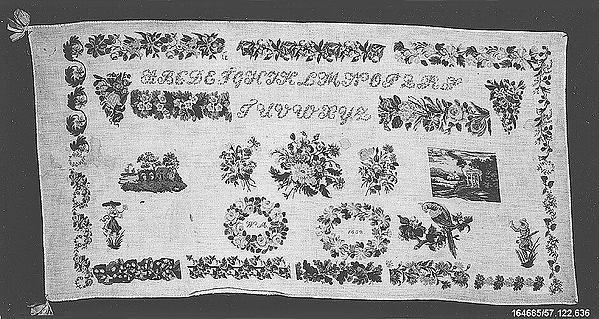 ABCDEFGHIKLMNOPQRS
TUVWXYZ
W.A.
164665/57.122.636